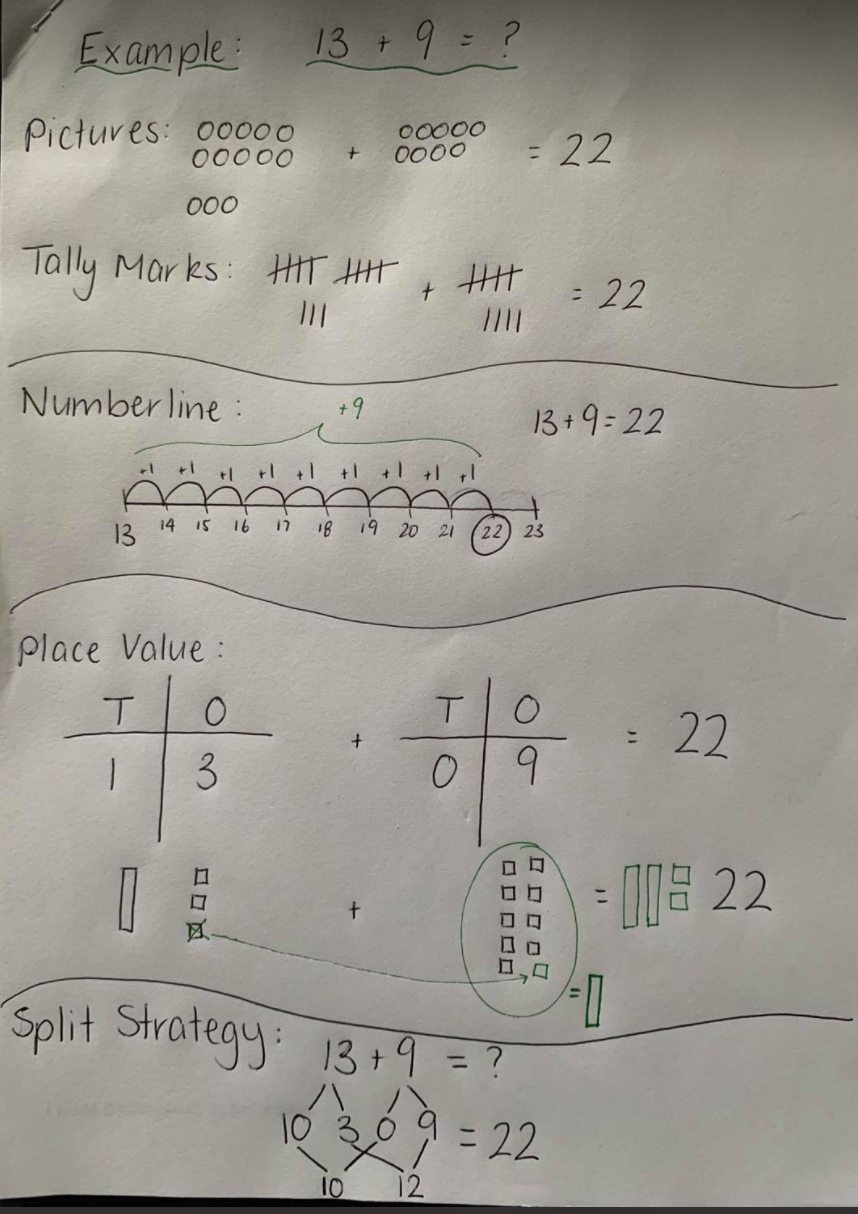 Example: 13 + 9 = ?
Pictures: 00000 + 00000 = 22
00000 0000
000
Tally Marks: 卌 卌 + 卌 = 22
||| ||||
Numberline: +9 13+9=22
+1 +1 +1 +1 +1 +1 +1 +1 +1
13 14 15 16 17 18 19 20 21 22 23
Place Value:
T O + T O = 22
1 3 0 9
+ = 22
=
Split Strategy: 13 + 9 = ?
10 3 0 9 = 22
10 12